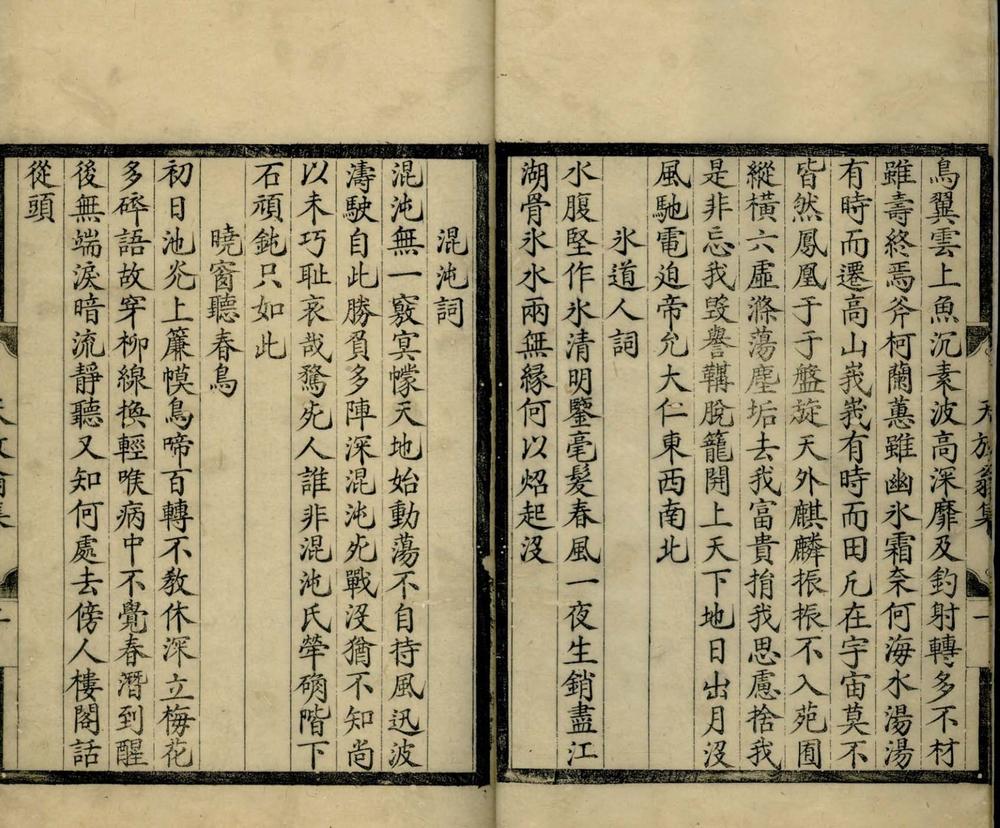 天放翁集
一
鳥翼雲上魚沉素波高深靡及釣射轉多不材
雖壽終焉斧柯蘭蕙雖幽氷霜奈何海水湯湯
有時而遷高山峩峩有時而田凢在宇宙莫不
皆然鳳凰于于盤旋天外麒麟振振不入苑囿
縱橫六虛滌蕩塵垢去我富貴捐我思慮捨我
是非忘我毀譽韝脫籠開上天下地日出月沒
風馳電迫帝允大仁東西南北
氷道人詞
水腹堅作氷清明鑒毫髪春風一夜生銷盡江
湖骨氷水兩無縁何以炤起沒
混沌詞
混沌無一竅㝠幪天地始動蕩不自持風迅波
濤駛自此勝負多陣深混沌死戰沒猶不知尚
以未巧耻哀哉騖死人誰非混沌氏犖确階下
石頑鈍只如此
曉窗聽春鳥
初日池光上簾幙鳥啼百轉不敎休深立梅花
多碎語故穿柳線換輕喉病中不覺春潛到醒
後無端淚暗流靜聽又知何處去傍人樓閣話
從頭